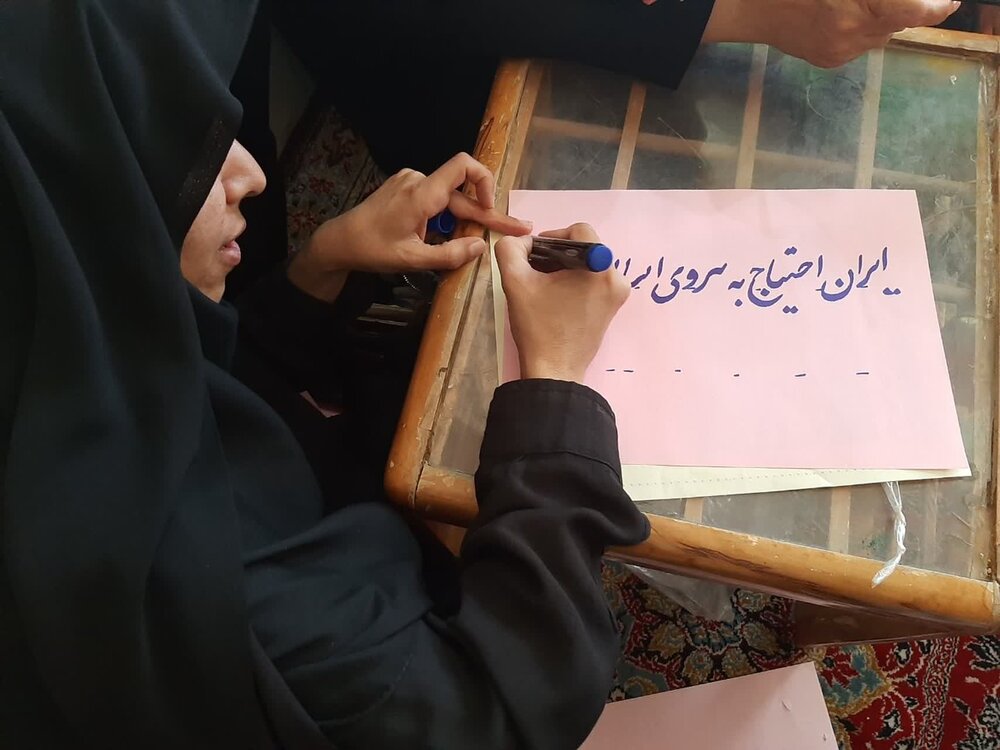 ایران احتیاج به سروی ایرا